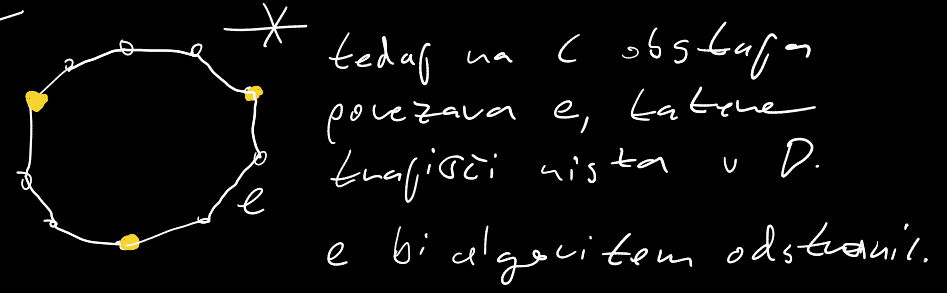 tedaj na C obstaja
povezava e, katere
krajišči nista v D.
e
e bi algoritem odstranil.